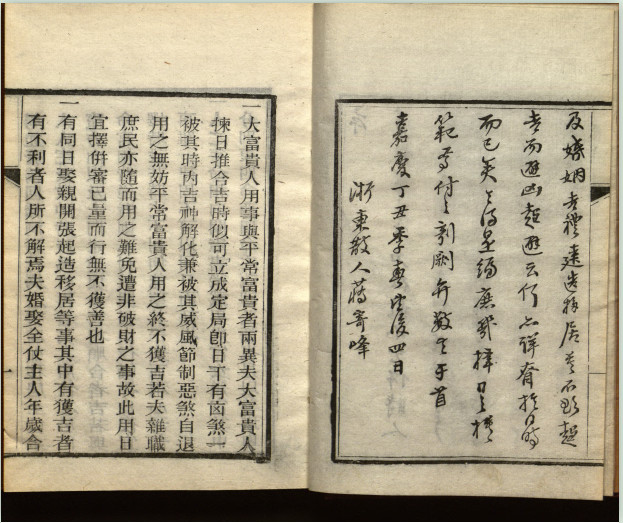 及嫁姻吉禮建造移居莫不欲趨
吉而避凶趨避云何亦詳於日時
而已矣是編庶幾擇日之模
範焉付之剞劂弁數言于首
嘉慶丁丑季春望後四日
浙東散人蔣寄峰
一大富貴人用事與平常富貴者兩異夫大富貴人
揀日推合吉時似可立成定局卽日下有凶煞一
被其時內吉神解化兼被其威風節制惡煞自退
用之無妨平常富貴人用之終不獲吉若夫雜職
庶民亦隨而用之難免遭非破財之事故此用日
宜擇倂審已量而行無不獲善也
一有同日娶親開張起造移居等事其中有獲吉者
有不利者人所不解焉夫婚娶全仗主人年歲合
一